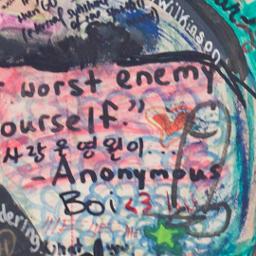 Wilkinson
worst enemy
ourself."
사랑은영원이...
-Anonymous
Boi <3 !!
dering
what you